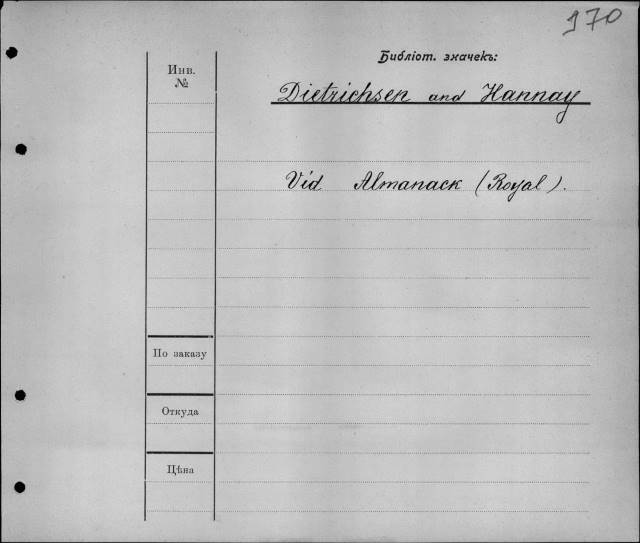 970
Библіот. значекъ:
Инв.
№
Dietrichsen and Hannay
Vid Almanack (Royal).
По заказу
Откуда
Цѣна